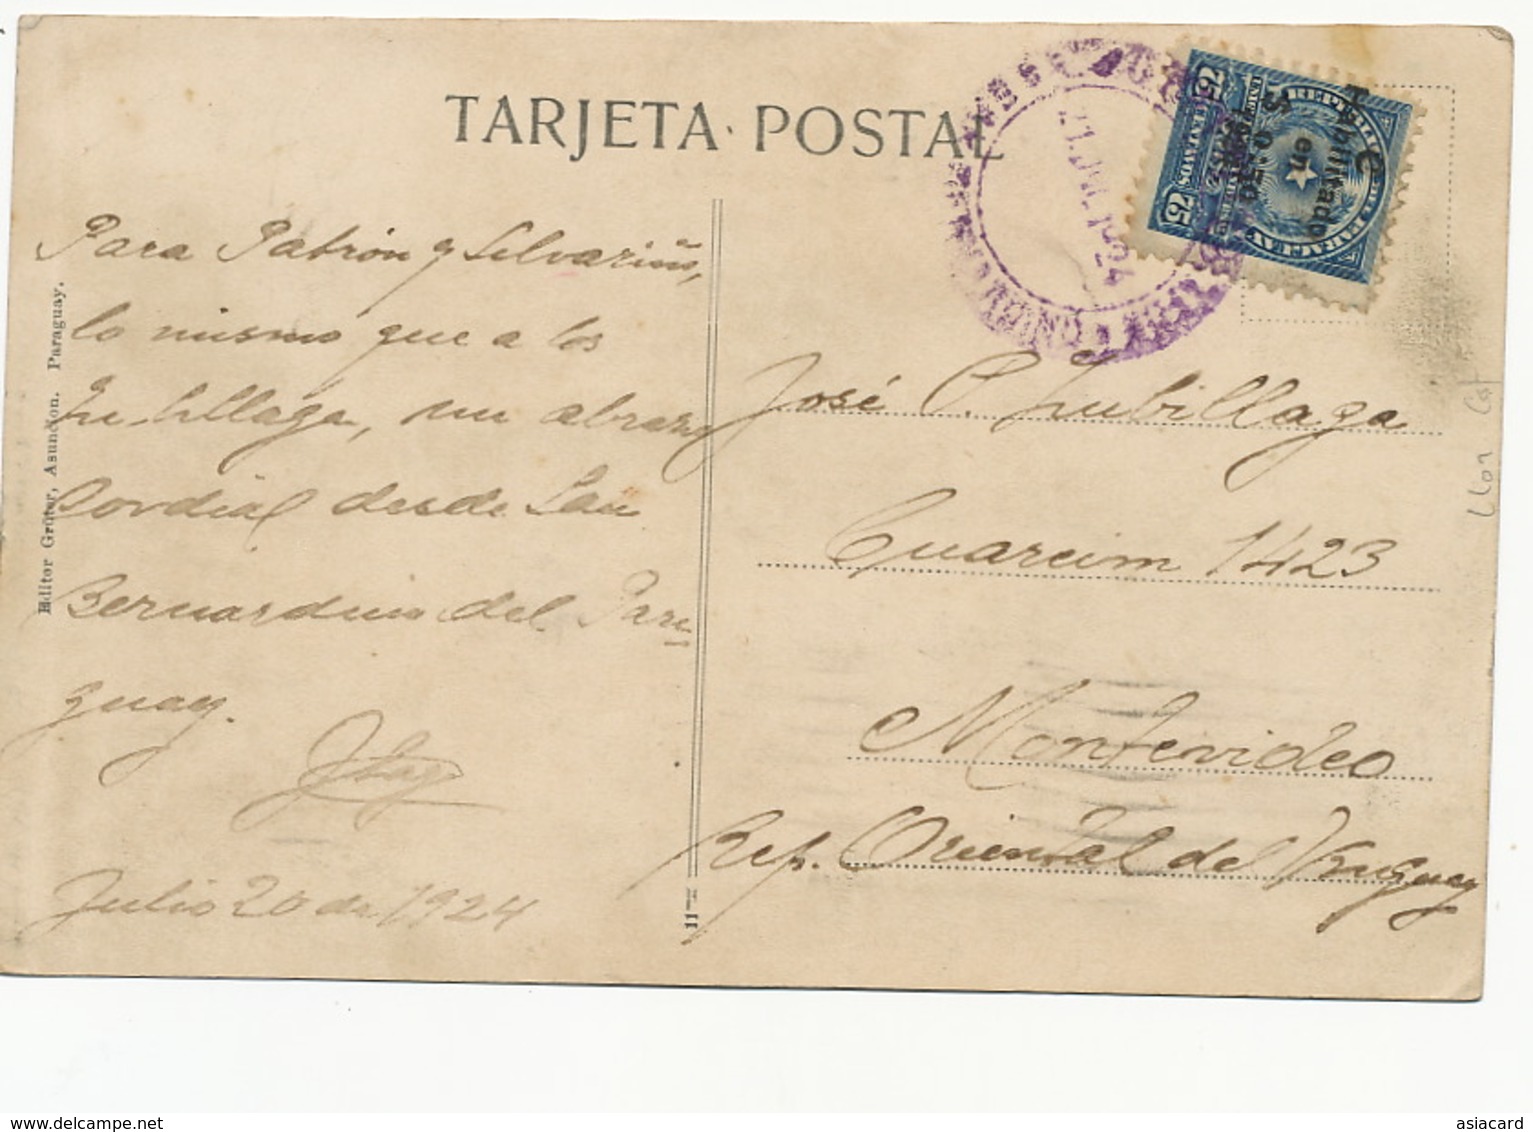 TARJETA POSTAL
REPUBLICA DEL PARAGUAY
75
75
C
Habilitado
en
$ 0:50
21 JUL 1924
Para Patrón y Silvariño,
lo mismo que a los
Zubillaga, un abrazo
cordial desde San
Bernardino del Para
guay.
Julio 20 de 1924
José P. Zubillaga
Cuareim 1423
Montevideo
Rep. Oriental del Uruguay
Editor Grüter, Asunción. Paraguay.
11
delcampe.net
asiacard